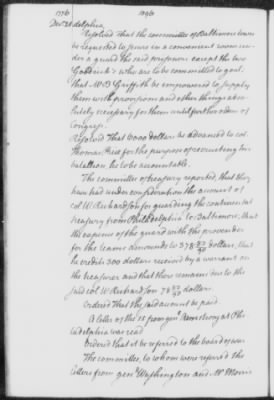 1776 1096
Dec 31 adelphia
Resolved That the committee of Baltimore town
be requested to secure in a convenient room un-
der a guard the said prysoner except the two
Goodrick's who are to be committed to goal:
that Mr B Griffith be empowered to supply
them with provisions and other things abso-
lutely necessary for them until further orders of
Congress.
Resolved That 6000 dollars be advanced to col
Thomas Price for the purpose of recruiting his
batallion, he to be accountable.
The committee of treasury reported, that they
have had under consideration the account of
col W Richardson for guarding the continental
treasury from Philadelphia to Baltimore; that
the expence of the guard with the provender
for the teams amounts to 378 82/90 dollars, that
he credits 300 dollars received by a warrant on
the treasurer and that there remains due to the
said col W Richardson 78 82/90 dollars.
Ordered That the said account be paid.
A letter of the 18 from genl Armstrong at Phi
ladelphia was read
Ordered that it be referred to the board of war
The committee, to whom were referred the
letters from genl Washington and Mr Morris